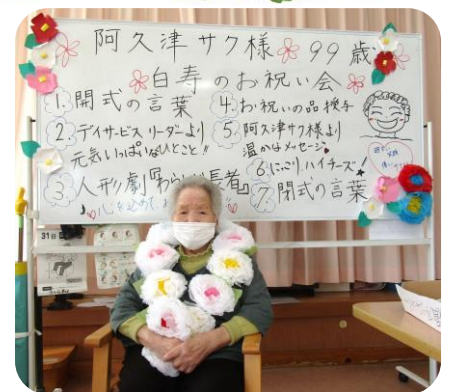 阿久津サク様 99歳
白寿のお祝い会
1. 開式の言葉
2. デイサービスリーダーより
元気いっぱいなひとこと!!
3. 人形劇『わらしべ長者』
4. お祝いの品授与
5. 阿久津サク様より
温かなメッセージ
6. にっこりハイチーズ!
7. 閉式の言葉
31日